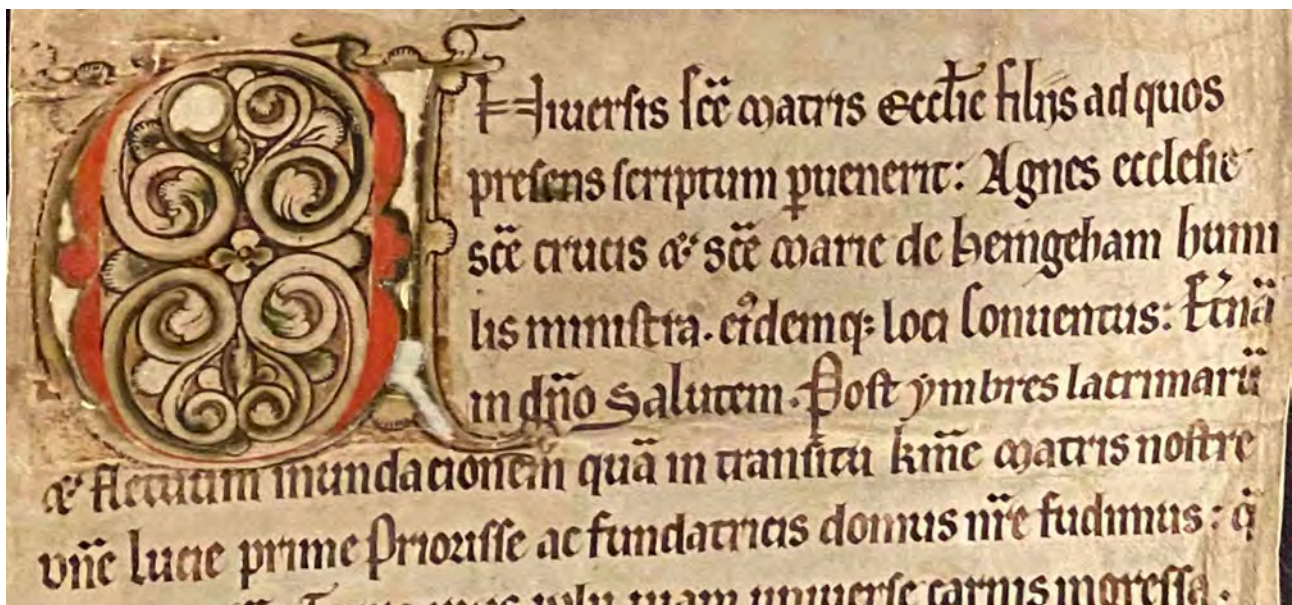 UNiuersis sc̄e Matris Eccl̄ie filijs ad quos
presens scriptum ꝑuenerit: Agnes ecclesie
sc̄e crucis & sc̄e Marie de heingeham humi
lis ministra. eiꝰdemq; loci Conuentus: Et̓nā
in dn̄o Salutem. Post ymbres lacrimarū
& fletuum inundacionem quā in transitu km̄e Matris nostre
vn̄e lucie prime Priorisse ac fundatricis domus nr̄e fudimus:
uniuerse carnis ingressa.